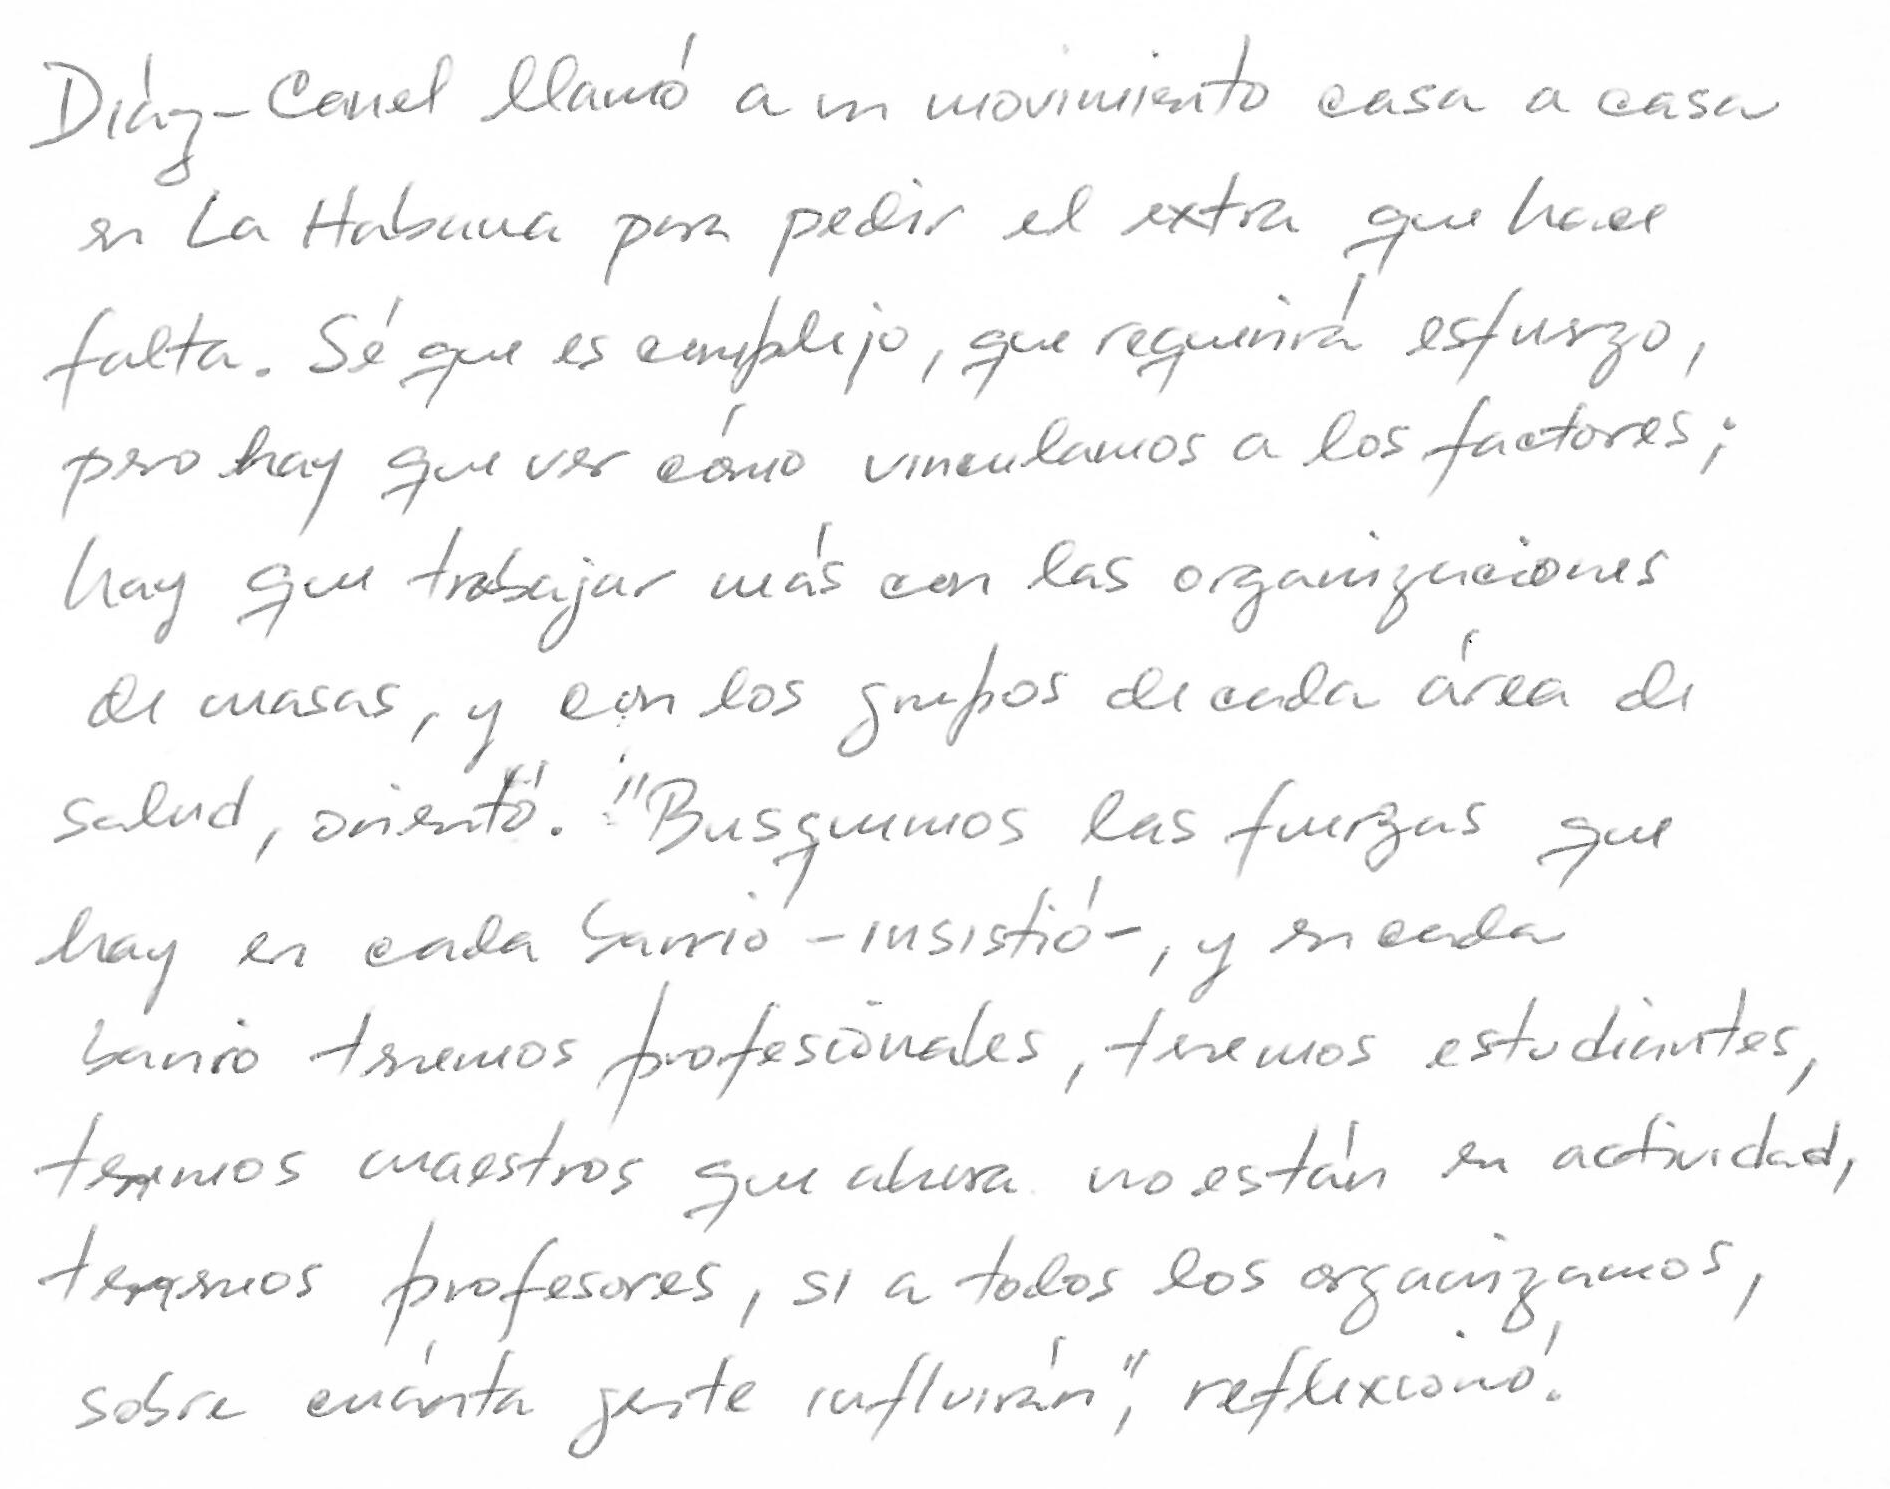 Díaz-Canel llamó a un movimiento casa a casa
en La Habana para pedir el extra que hace
falta. Sé que es complejo, que requerirá esfuerzo,
pero hay que ver cómo vinculamos a los factores;
hay que trabajar más con las organizaciones
de masas, y con los grupos de cada área de
salud, orientó. "Busquemos las fuerzas que
hay en cada barrio -insistió-, y en cada
barrio tenemos profesionales, tenemos estudiantes,
tenemos maestros que ahora no están en actividad,
tenemos profesores, si a todos los organizamos,
sobre cuánta gente influirán", reflexionó.